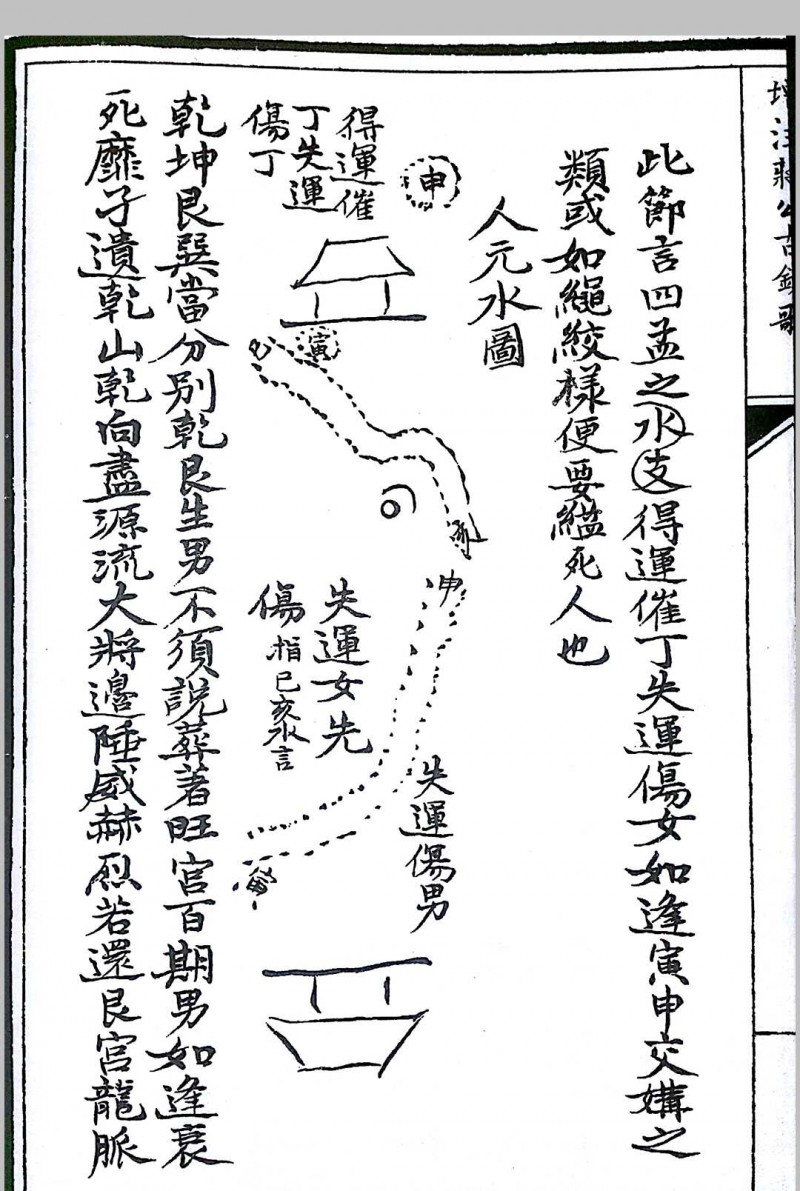 增注蔣公古鏡歌
此節言四孟之水支得運催丁失運傷女如逢寅申交媾之
類或如繩絞樣便要縊死人也
人元水圖
申
得運催
丁失運
傷丁
寅
申
失運女先
傷指巳亥水言
失運傷男
乾坤艮巽當分別乾艮生男不須説葬著旺宮百期男如逢衰
死靡孑遺乾山乾向盡源流大將邊陲威赫烈若還艮宮龍脈